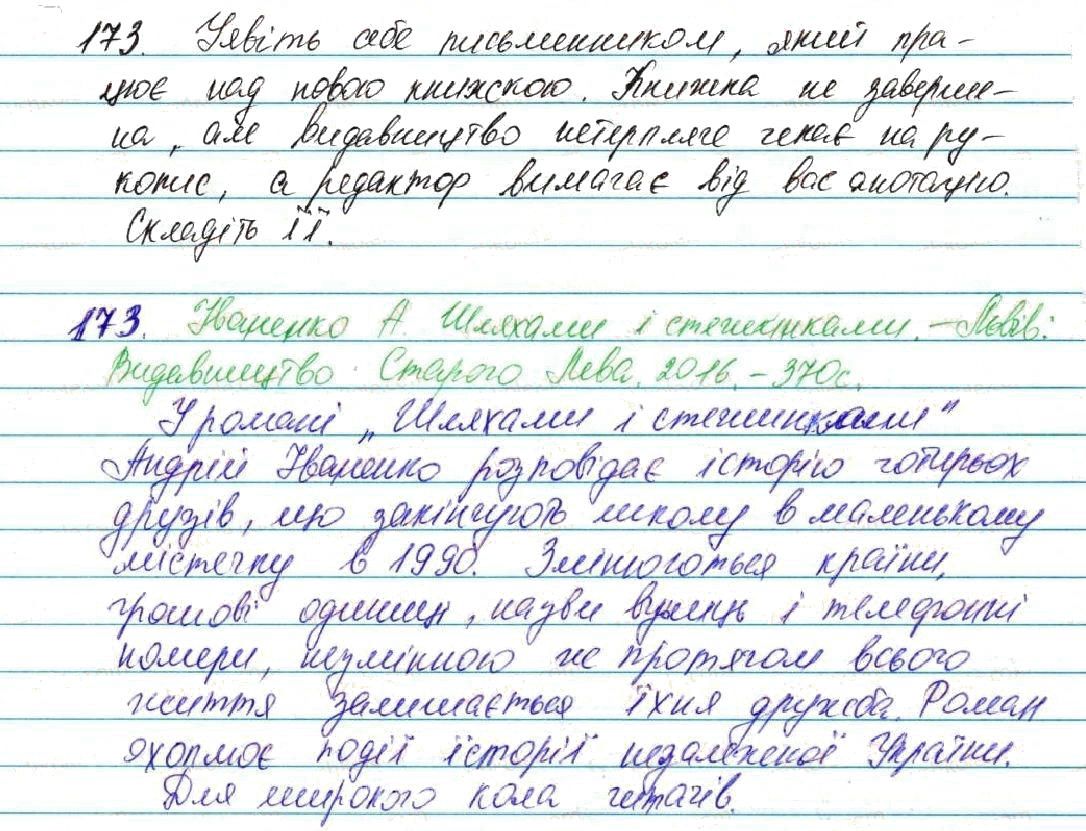 173. Уявіть себе письменником, який пра-
цює над новою книжкою. Книжка не заверше-
на, але видавництво нетерпляче чекає на ру-
копис, а редактор вимагає від вас анотацію.
Складіть її.
173. Іваненко А. Шляхами і стежинками. – Львів:
Видавництво Старого Лева, 2016. – 370с.
У романі „Шляхами і стежинками"
Андрій Іваненко розповідає історію чотирьох
друзів, що закінчують школу в маленькому
містечку в 1990. Змінюються країни,
грошові одиниці, назви вулиць і телефонні
номери, незмінною же протягом всього
життя залишається їхня дружба. Роман
яхоплює події історії незалежної України.
Для широкого кола читачів.